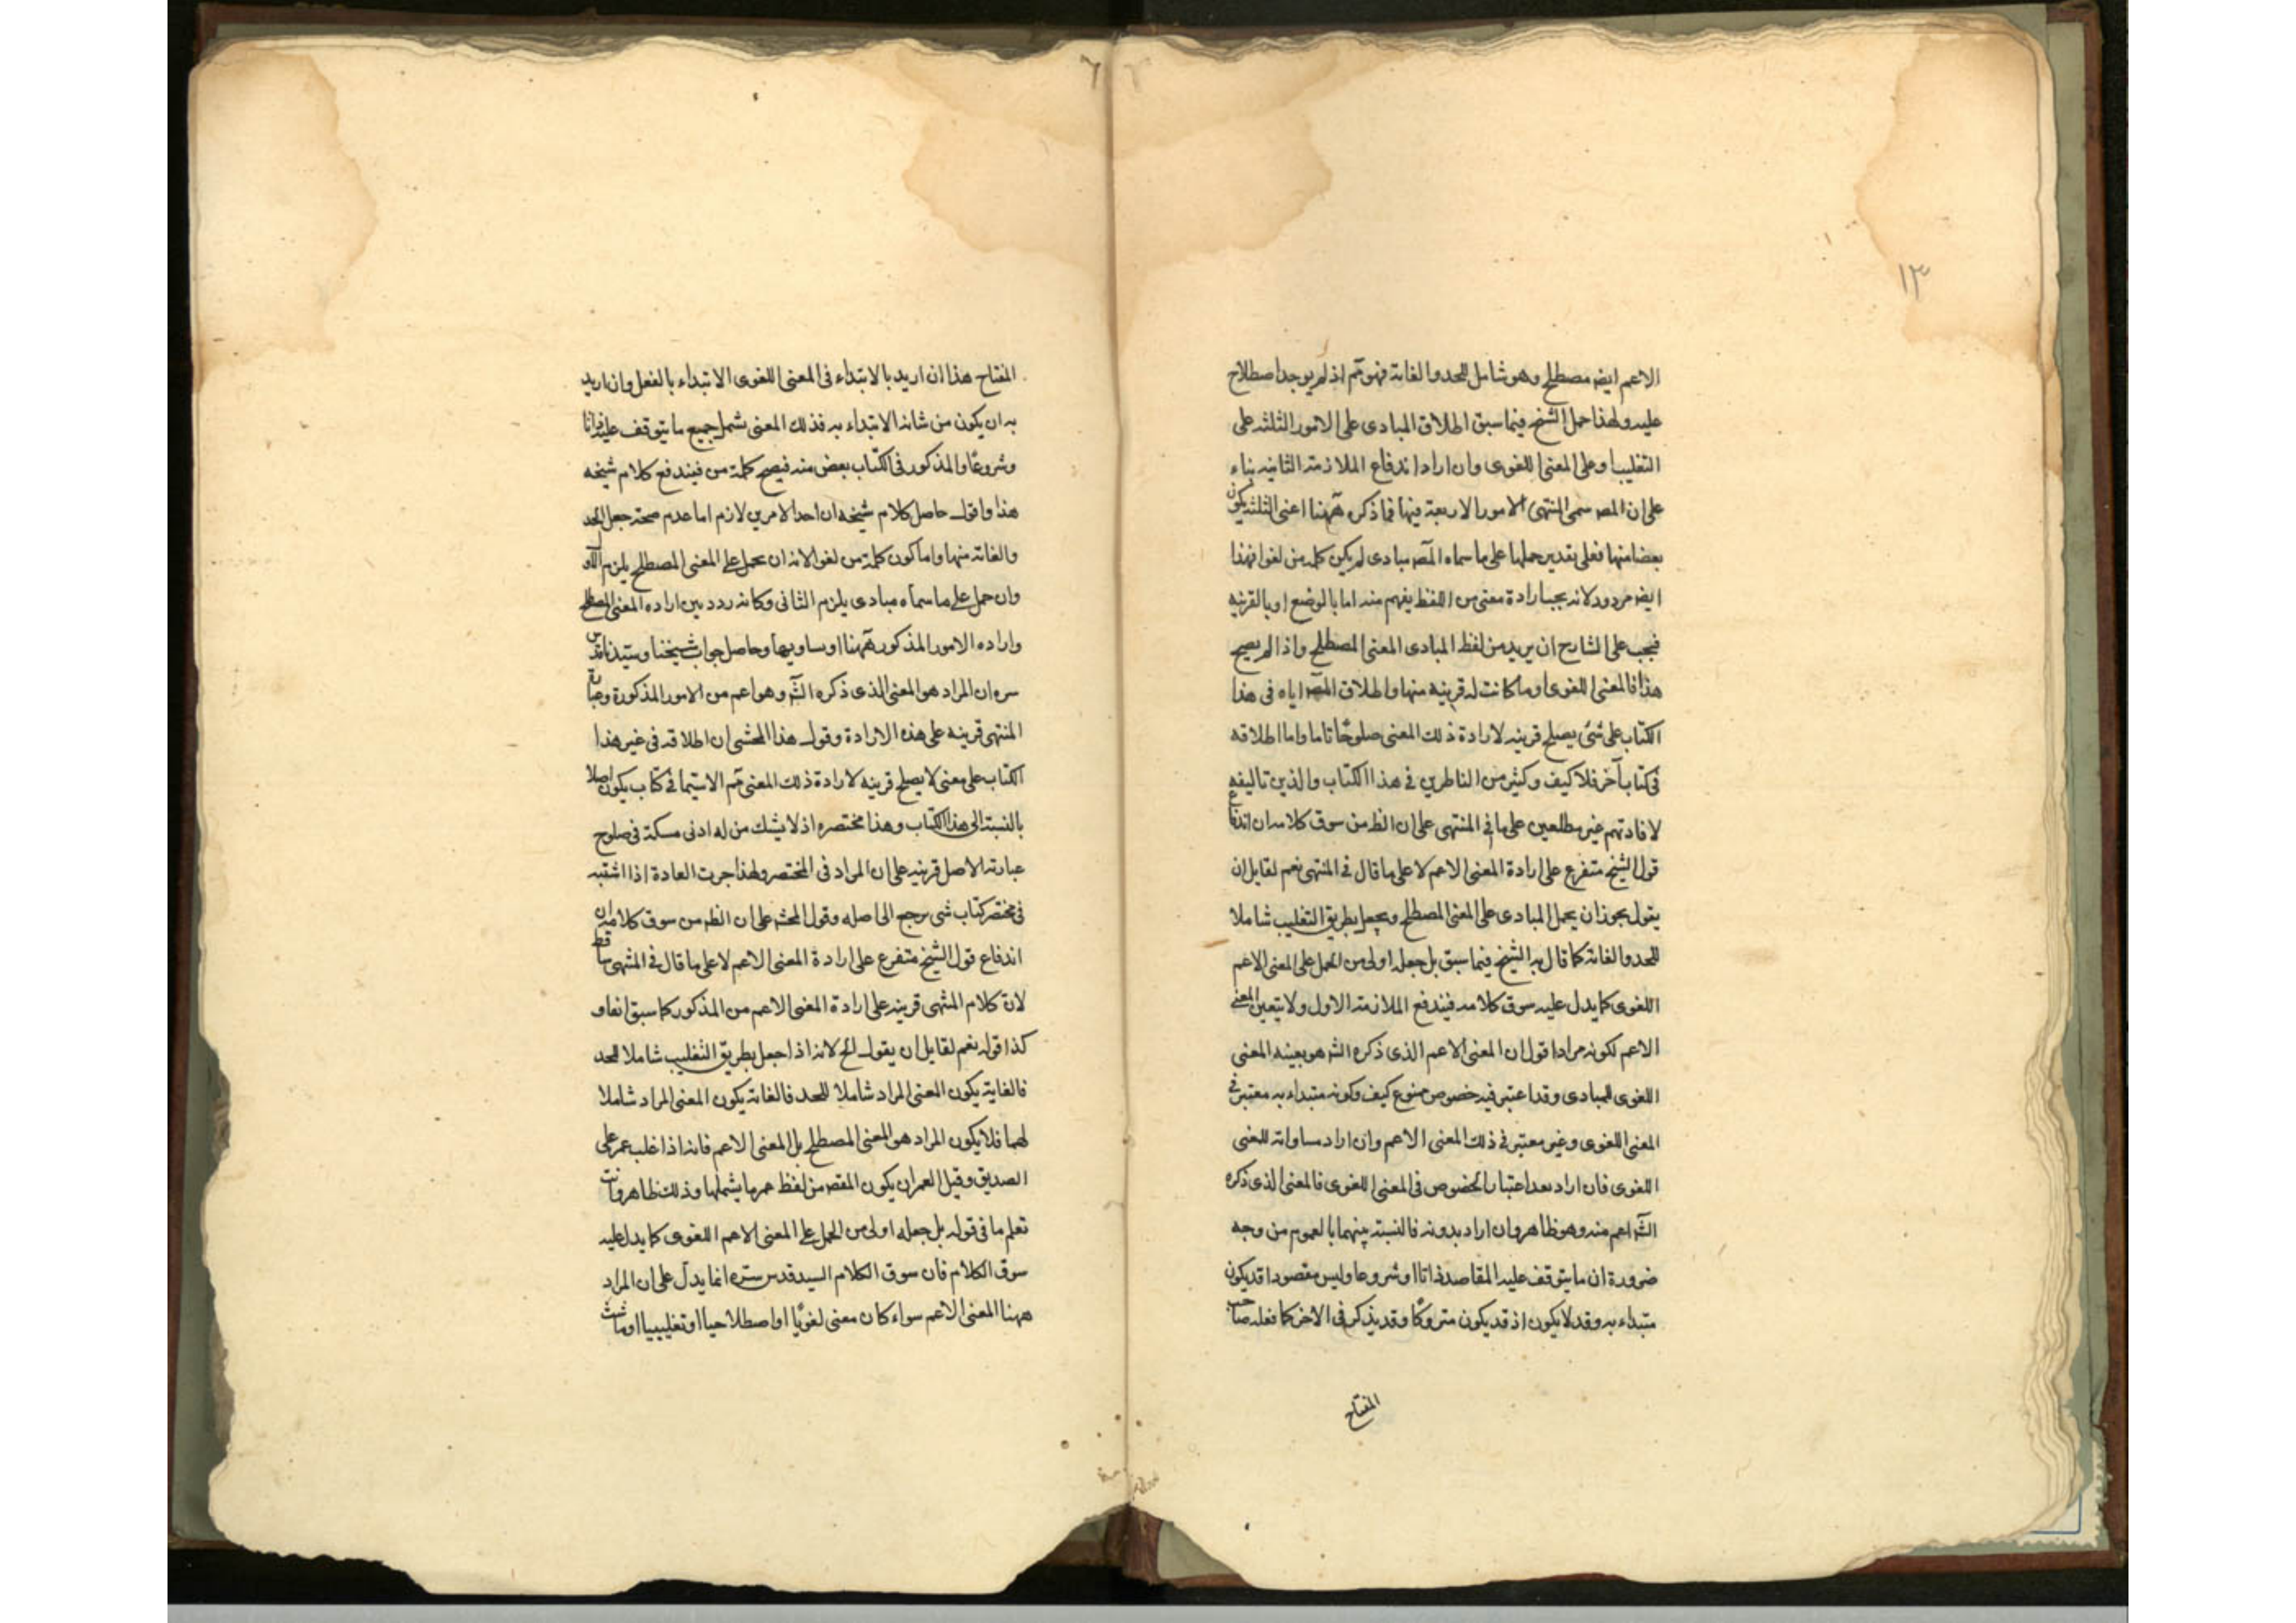 ١٣
الاعم ايضه مصطلح وهو شامل للحد والغاية فهو تم اذ لم يوجد اصطلاح
عليه ولهذا حمل الشيخ فيما سبق اطلاق المبادى على الامور الثلثة على
التغليب او على المعنى اللغوى وان اراد اندفاع الملازمة الثانية بناء
على ان المصـ سمى المنتهى الامور الاربعة فيها فما ذكره ههنا اعنى الثلثة يكون
بعضا منها فعلى تقدير حملها على ما سماه المصـ مبادى لم يكن كلمة من لغوا فهذا
ايضه مردود لانه يجب ارادة معنى من اللفظ يفهم منه اما بالوضع او بالقرينة
فيجب على الشارح ان يريد من لفظ المبادى المعنى المصطلح واذا لم يصح
هذا فالمعنى اللغوى او ما كانت له قرينة منها واطلاق المصـ اياه فى هذا
الكتاب على شئ يصلح قرينه لارادة ذلك المعنى صلوحًا تاما واما اطلاقه
فى كتاب آخر فلا كيف وكثير من الناظرين فى هذا الكتاب والذين تاليفه
لافادتهم غير مطلعين على ما فى المنتهى على ان الظ من سوق كلامه ان اندفاع
قول الشيخ متفرع على ارادة المعنى الاعم لا على ما قال فى المنتهى نعم لقايل ان
يقول يجوز ان يحمل المبادى على المعنى المصطلح ويجعل بطريق التغليب شاملا
للحد والغاية كما قال به الشيخ فيما سبق بل جعله اولى من الحمل على المعنى الاعم
اللغوى كما يدل عليه سوق كلامه فيندفع الملازمة الاول ولا يتعين المعنى
الاعم لكونه مرادا قول ان المعنى الاعم الذى ذكره الشـ هو بعينه المعنى
اللغوى للمبادى وقد اعتبر فيه خصوص ممنوع كيف وكونه مبتداء به معتبر فى
المعنى اللغوى وغير معتبر فى ذلك المعنى الاعم وان اراد مساواته للمعنى
اللغوى فان اراد بعد اعتبار الخصوص فى المعنى اللغوى فالمعنى الذى ذكره
الشـ اعم منه وهو ظاهر وان اراد بدونه فالنسبة بينهما بالعموم من وجه
ضرورة ان ما يتوقف عليه المقاصد ذاتا او شروعا وليس مقصودا قد يكون
مبتداء به وقد لا يكون اذ قد يكون متروكًا وقد يذكر فى الاخر كما فعله صاحب
المفتاح
المفتاح هذا ان اريد بالابتداء فى المعنى اللغوى الابتداء بالفعل وان اريد
به ان يكون من شانه الابتداء به فذلك المعنى شمل جميع ما يتوقف عليه ذاتا
وشروعًا والمذكور فى الكتاب بعض منه فيصح كلمة من فيندفع كلام شيخه
هذا واقول حاصل كلام شيخه ان احد الامرين لازم اما عدم صحة جعل الحد
والغاية منها واما كون كلمة من لغوا لانه ان يحمل على المعنى المصطلح يلزم الاول
وان حمل على ما سماه مبادى يلزم الثانى وكانه ردد بين اراده المعنى المصطلح
واراده الامور المذكوره ههنا او مساويها وحاصل جواب شيخنا وسيدنا قدس
سره ان المراد هو المعنى الذى ذكره الشـ وهو اعم من الامور المذكورة وعبارة
المنتهى قرينه على هذه الارادة وقول هذا المحشى ان اطلاقه فى غير هذا
الكتاب على معنى لا يصلح قرينه لارادة ذلك المعنى تم لاسيما فى كتاب يكون اصلا
بالنسبة الى هذا الكتاب وهذا مختصره اذ لا يشك من له ادنى مسكة فى صلوح
عبارته الاصل قرينه على ان المراد فى المختصر ولهذا جرت العادة اذا اشتبه
فى مختصر كتاب شئ يرجع الى اصله وقول المحشـ على ان الظ من سوق كلامه ان
اندفاع قول الشيخ متفرع على ارادة المعنى الاعم لا على ما قال فى المنتهى ساقط
لان كلام المنتهى قرينه على ارادة المعنى الاعم من المذكور كما سبق انفا و
كذا قوله نعم لقايل ان يقول الخ لانه اذا جعل بطريق التغليب شاملا للحد
فالغاية يكون المعنى المراد شاملا للحد فالغاية يكون المعنى المراد شاملا
لهما فلا يكون المراد هو المعنى المصطلح بل المعنى الاعم فانه اذا غلب عمر على
الصديق وقيل العمران يكون المقصـ من لفظ عمر ما يشملها وذلك ظاهر وانت
تعلم ما فى قوله بل جعله اولى من الحمل على المعنى الاعم اللغوى كما يدل عليه
سوق الكلام فان سوق الكلام السيد قدس سره انما يدل على ان المراد
ههنا المعنى الاعم سواء كان معنى لغويًا او اصطلاحيا او تغليبيا او ما شئت